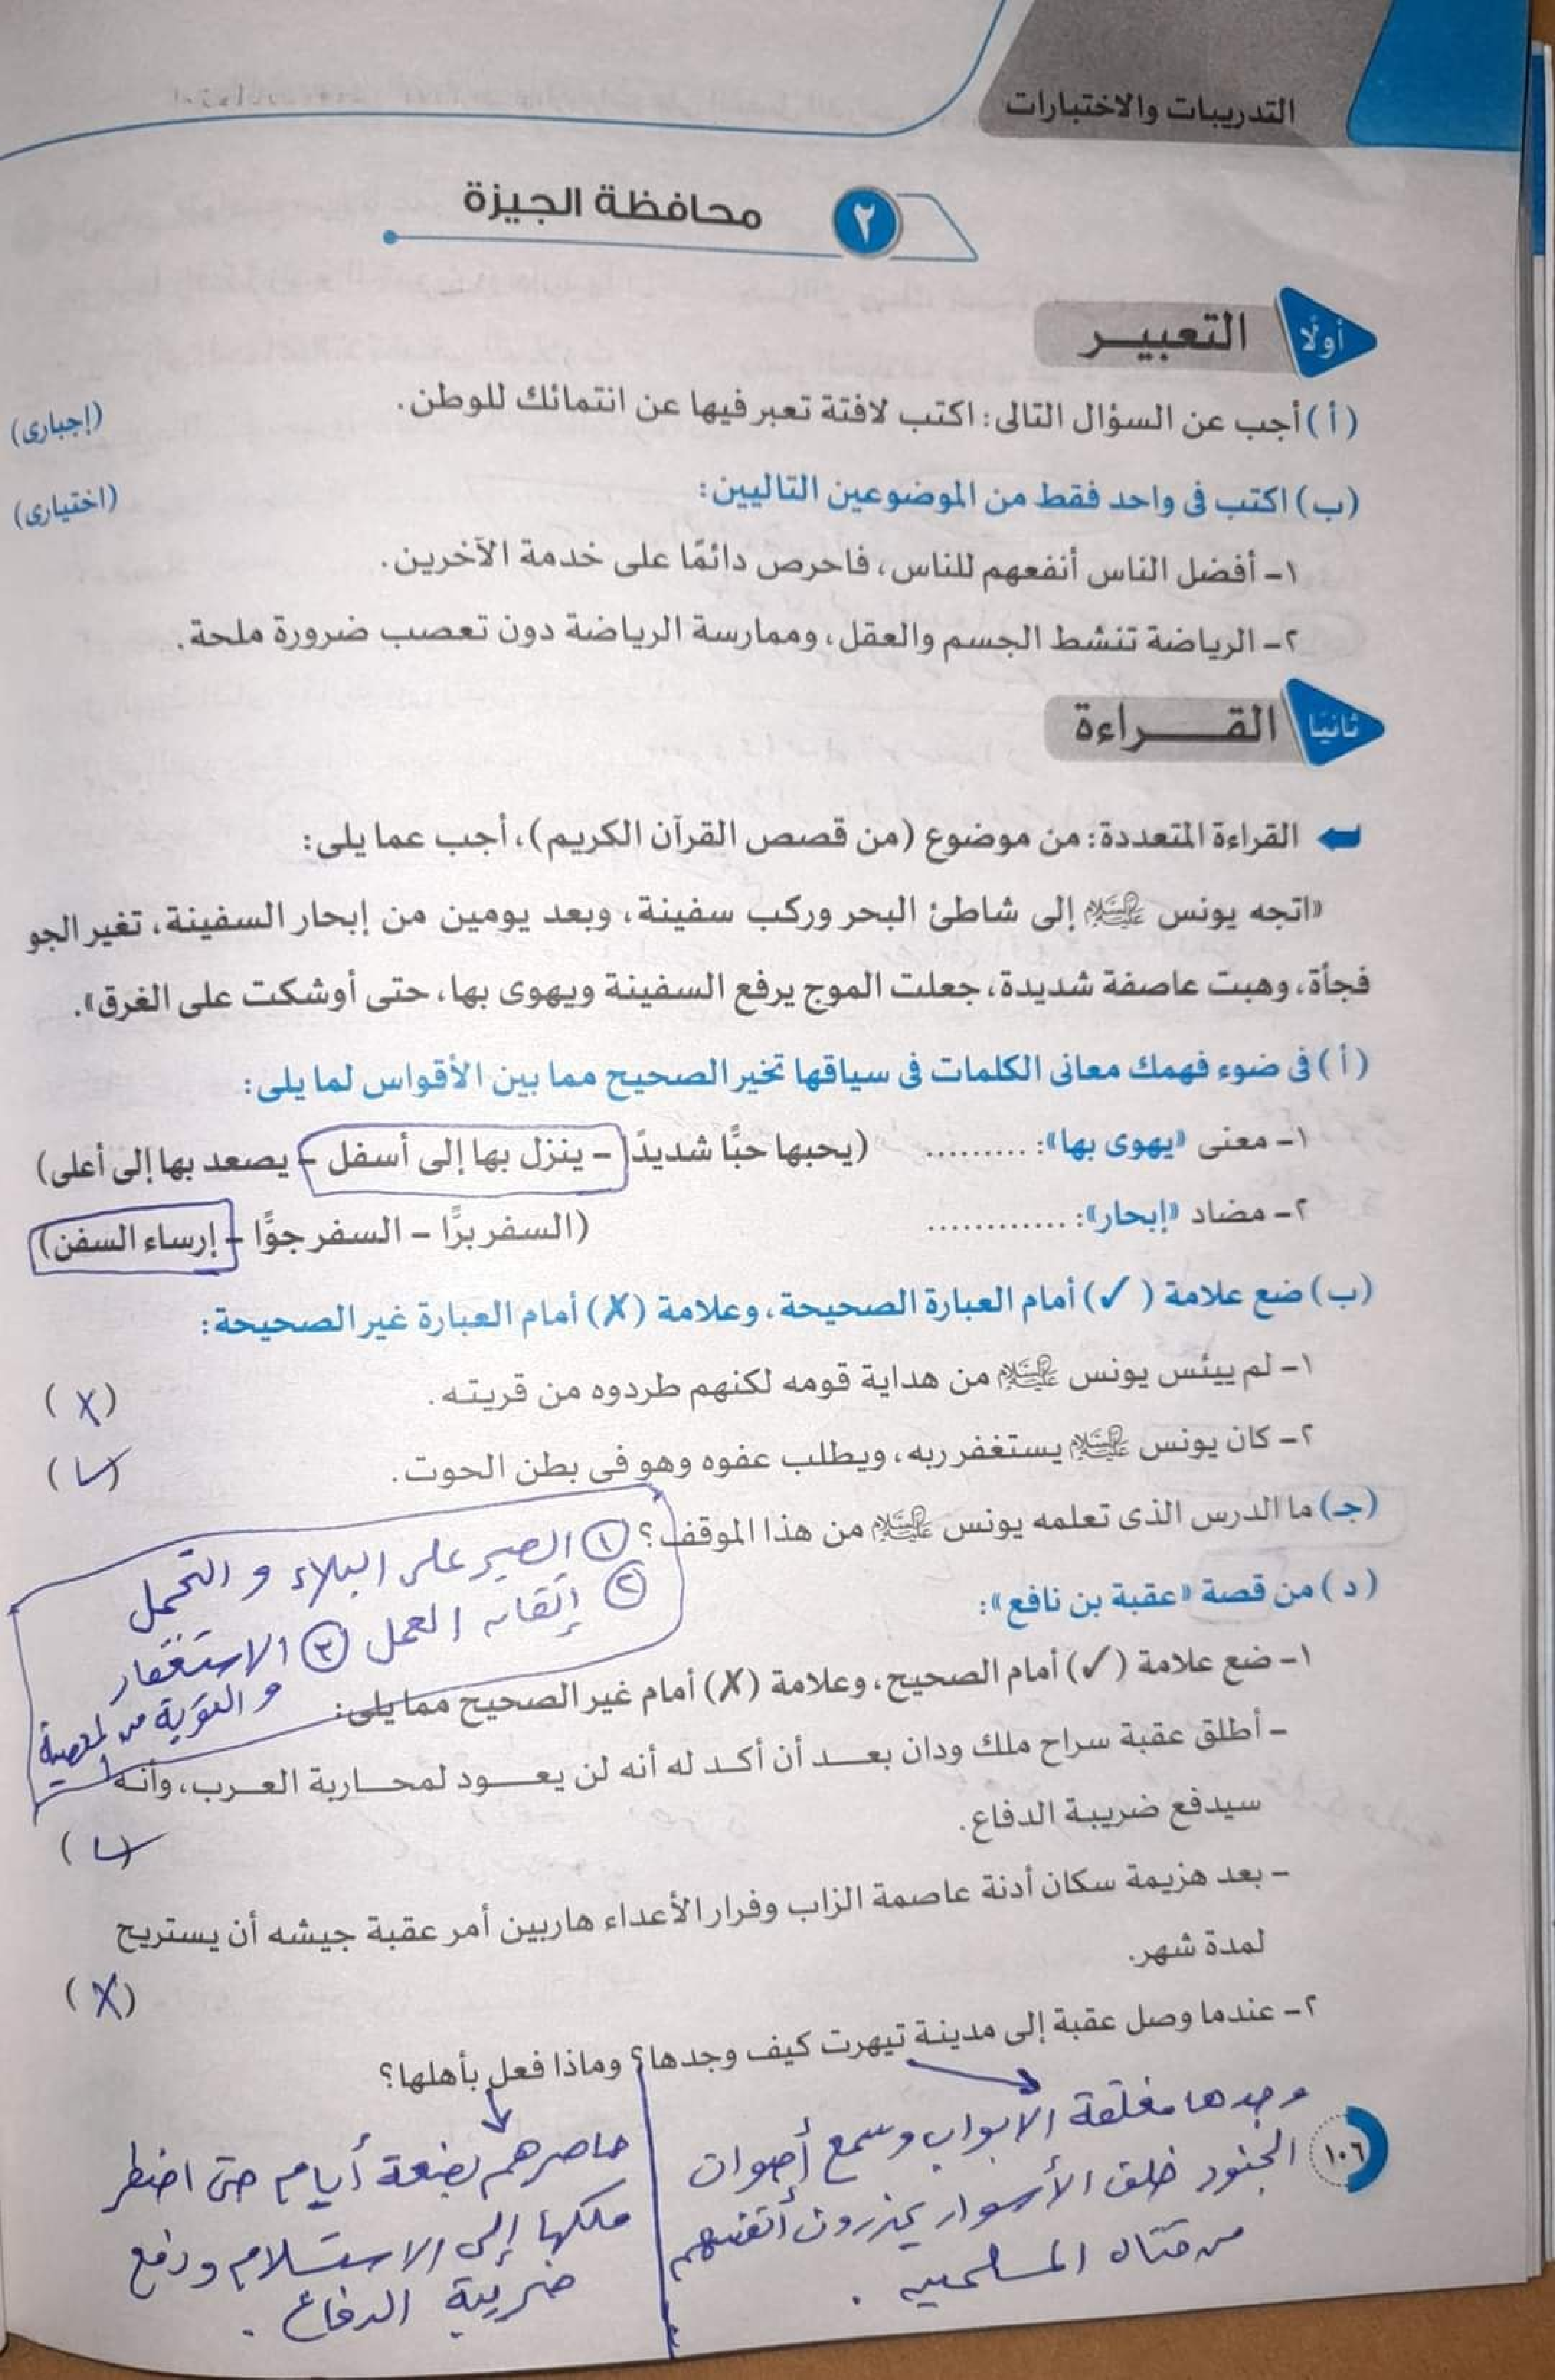 التدريبات والاختبارات
٢ محافظة الجيزة
أولًا التعبير
(أ) أجب عن السؤال التالى: اكتب لافتة تعبر فيها عن انتمائك للوطن. (إجبارى)
(ب) اكتب فى واحد فقط من الموضوعين التاليين: (اختيارى)
١- أفضل الناس أنفعهم للناس، فاحرص دائمًا على خدمة الآخرين.
٢- الرياضة تنشط الجسم والعقل، وممارسة الرياضة دون تعصب ضرورة ملحة.
ثانيًا القـــراءة
القراءة المتعددة: من موضوع (من قصص القرآن الكريم)، أجب عما يلى:
«اتجه يونس عليه السلام إلى شاطئ البحر وركب سفينة، وبعد يومين من إبحار السفينة، تغير الجو
فجأة، وهبت عاصفة شديدة، جعلت الموج يرفع السفينة ويهوى بها، حتى أوشكت على الغرق».
(أ) فى ضوء فهمك معانى الكلمات فى سياقها تخير الصحيح مما بين الأقواس لما يلى:
١- معنى «يهوى بها»: ......... (يحبها حبًّا شديدًا - ينزل بها إلى أسفل - يصعد بها إلى أعلى)
٢- مضاد «إبحار»: ............ (السفر برًّا - السفر جوًّا - إرساء السفن)
(ب) ضع علامة (✓) أمام العبارة الصحيحة، وعلامة (✗) أمام العبارة غير الصحيحة:
١- لم ييئس يونس عليه السلام من هداية قومه لكنهم طردوه من قريته. (✗)
٢- كان يونس عليه السلام يستغفر ربه، ويطلب عفوه وهو فى بطن الحوت. (✓)
(جـ) ما الدرس الذى تعلمه يونس عليه السلام من هذا الموقف؟
① الصبر على البلاء و التحمل
② إتقان العمل ③ الاستغفار
و التوبة من المعصية
(د) من قصة «عقبة بن نافع»:
١- ضع علامة (✓) أمام الصحيح، وعلامة (✗) أمام غير الصحيح مما يلى:
- أطلق عقبة سراح ملك ودان بعـــد أن أكـد له أنه لن يعـــود لمحـــاربة العـرب، وأنه
سيدفع ضريبة الدفاع. (✓)
- بعد هزيمة سكان أدنة عاصمة الزاب وفرار الأعداء هاربين أمر عقبة جيشه أن يستريح
لمدة شهر. (✗)
٢- عندما وصل عقبة إلى مدينة تيهرت كيف وجدها؟ وماذا فعل بأهلها؟
وجدها مغلقة الأبواب وسمع أصوات
الجنود خلف الأسوار يحذرون أنفسهم
من قتال المسلمين .
حاصرهم بضعة أيام حتى اضطر
ملكها إلى الاستسلام ودفع
ضريبة الدفاع .
١٠٦